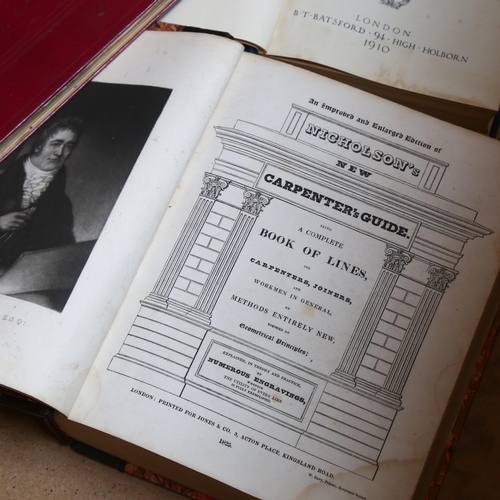 LONDON
B·T·BATSFORD·94·HIGH·HOLBORN
1910
An Improved and Enlarged Edition of
NICHOLSON's
NEW
CARPENTER's GUIDE,
BEING
A COMPLETE
BOOK OF LINES,
FOR
CARPENTERS, JOINERS,
AND
WORKMEN IN GENERAL,
ON
METHODS ENTIRELY NEW,
FOUNDED ON
Geometrical Principles;
EXPLAINED, IN THEORY AND PRACTICE,
BY
NUMEROUS ENGRAVINGS,
WHEREIN
THE UTILITY OF EVERY LINE
IS FULLY EXEMPLIFIED.
LONDON: PRINTED FOR JONES & CO. 3, ACTON PLACE, KINGSLAND ROAD.
ESQ.